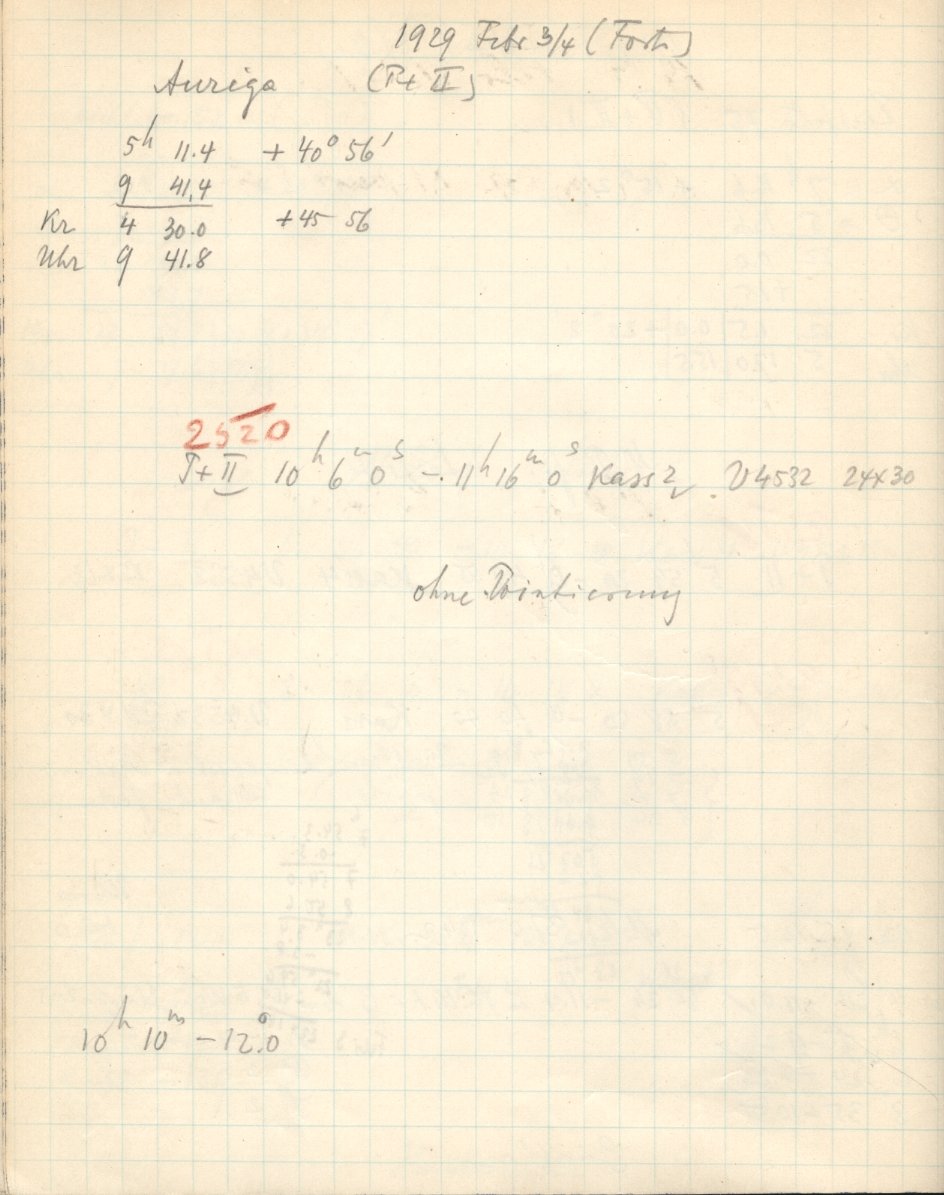 1929 Febr 3/4 (Forts)
Auriga (P+ II)
5h 11.4 + 40° 56'
9 41,4
Kr 4 30.0 +45 56
Uhr 9 41.8
2520
P+ II 10h 6m 0s -. 11h 16m 0s Kass 2 . V4532 24x30
ohne Pointierung
10h 10m - 12°.0